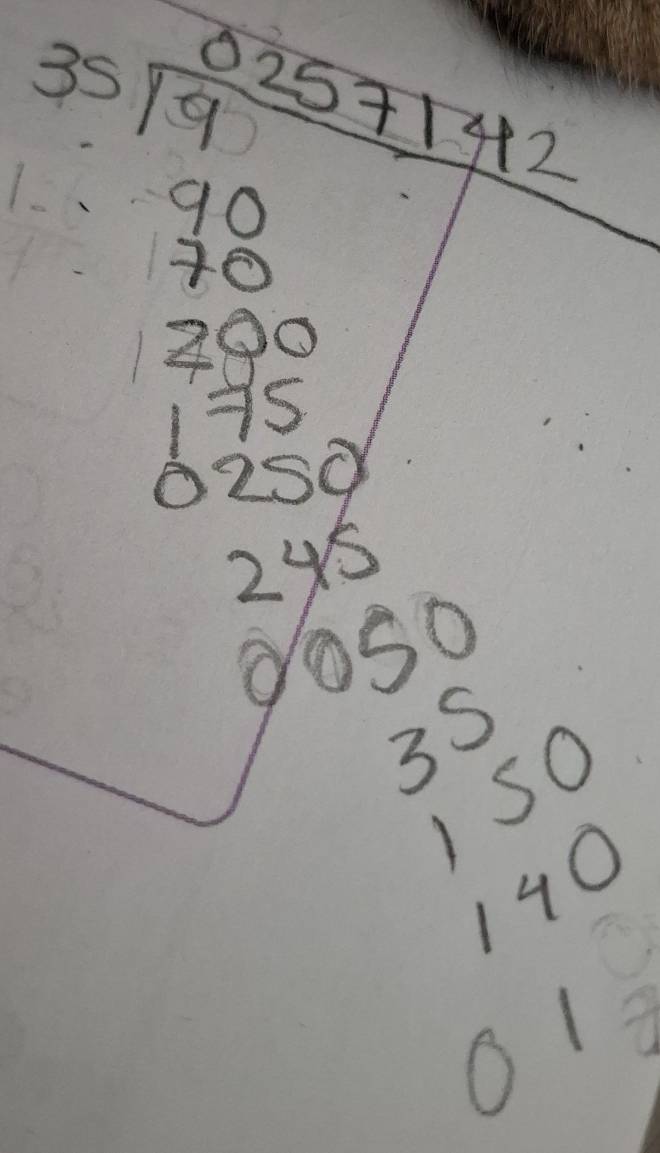 02571412
35 19
90
70
200
175
0250
245
0050
35
150
140
010